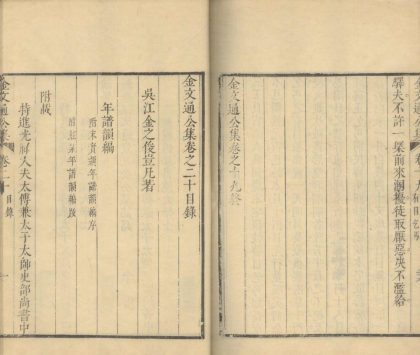 驛夫不許一槩前來溷擾徒取厭惡决不濫給
金文通公集卷之十九終
金文通公集卷之二十目錄
吳江金之俊豈凡著
年譜韻編
年譜韻編序
年譜韻編跋
附載
特進光祿大夫太傅兼太子太師吏部尚書中
金文通公集 卷二十 目錄 一